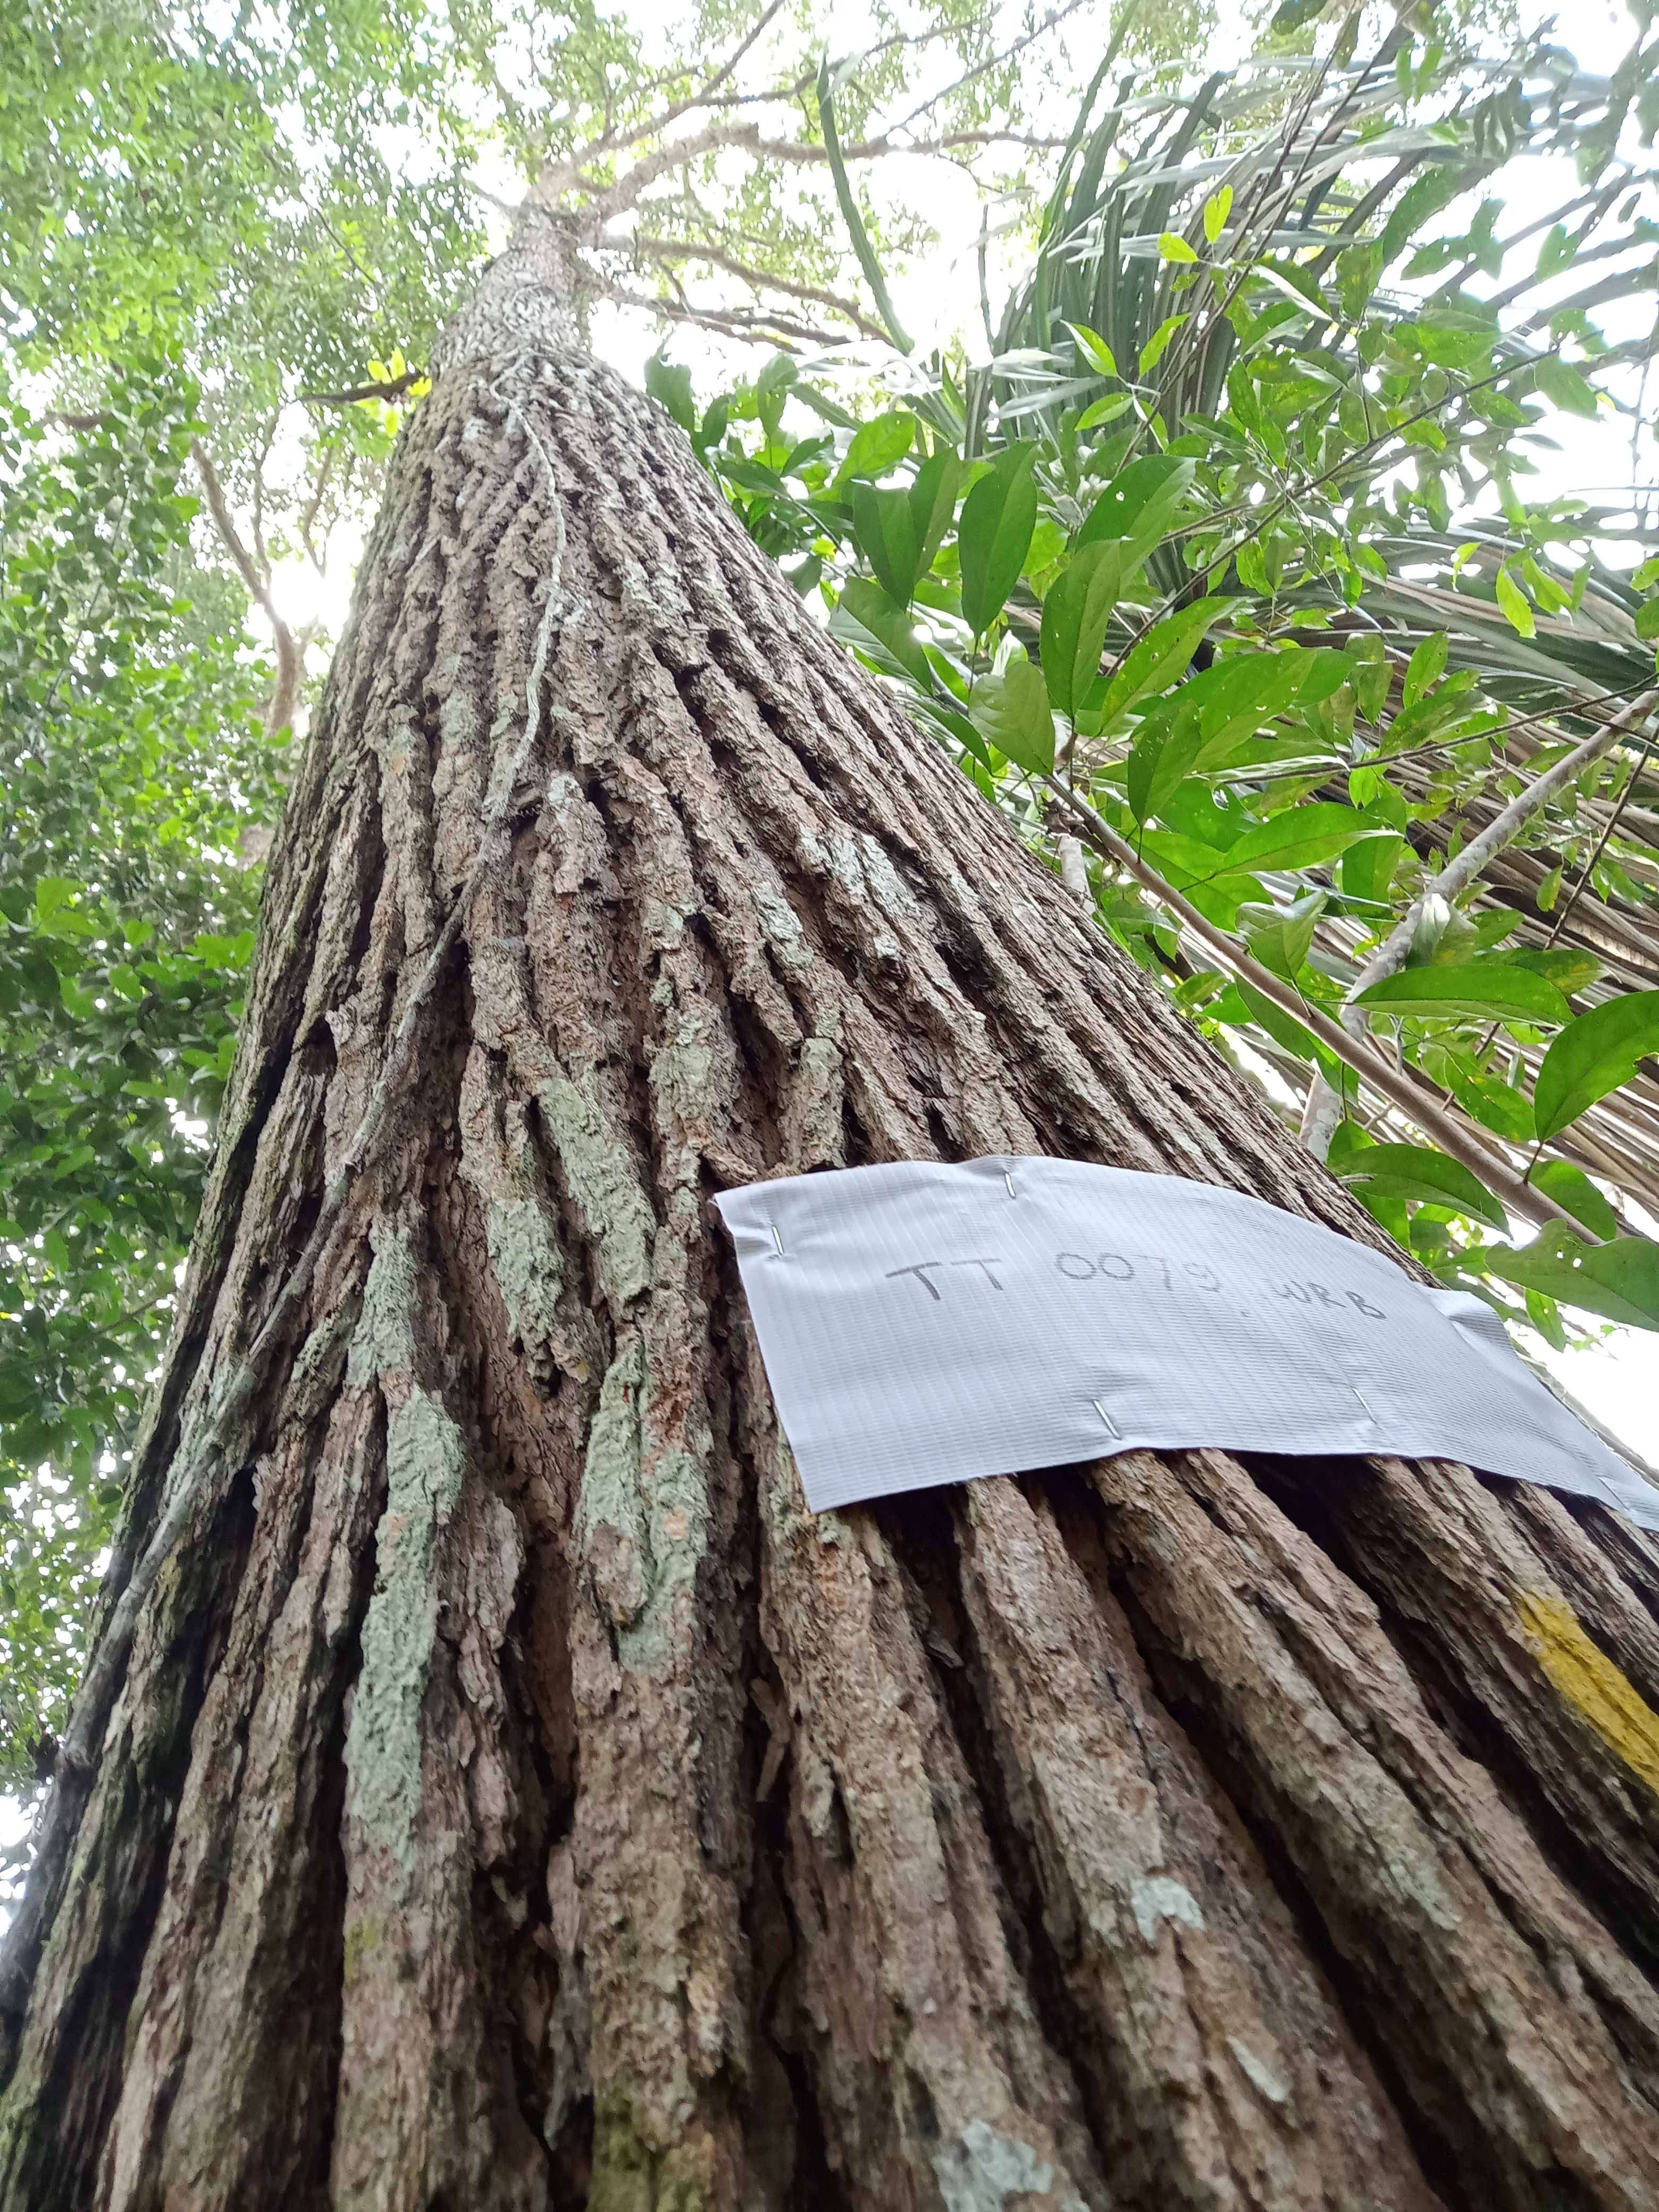 TT 0079. WRB